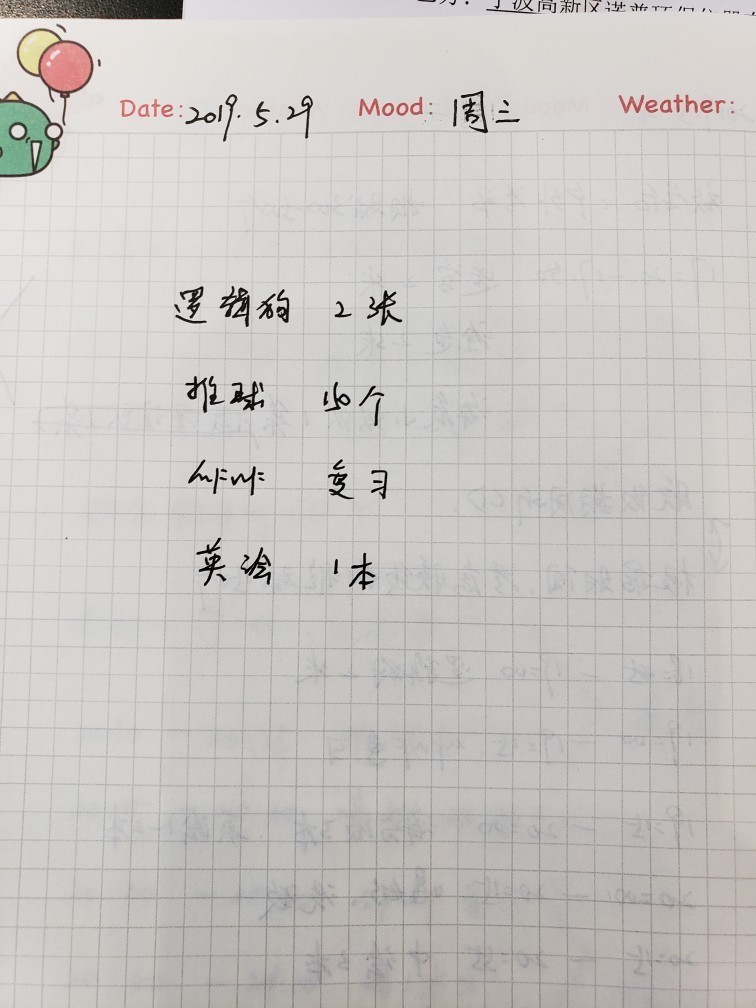 Date: 2019.5.29 Mood: 周三 Weather:
逻辑狗 2张
推球 150个
复习
英绘 1本